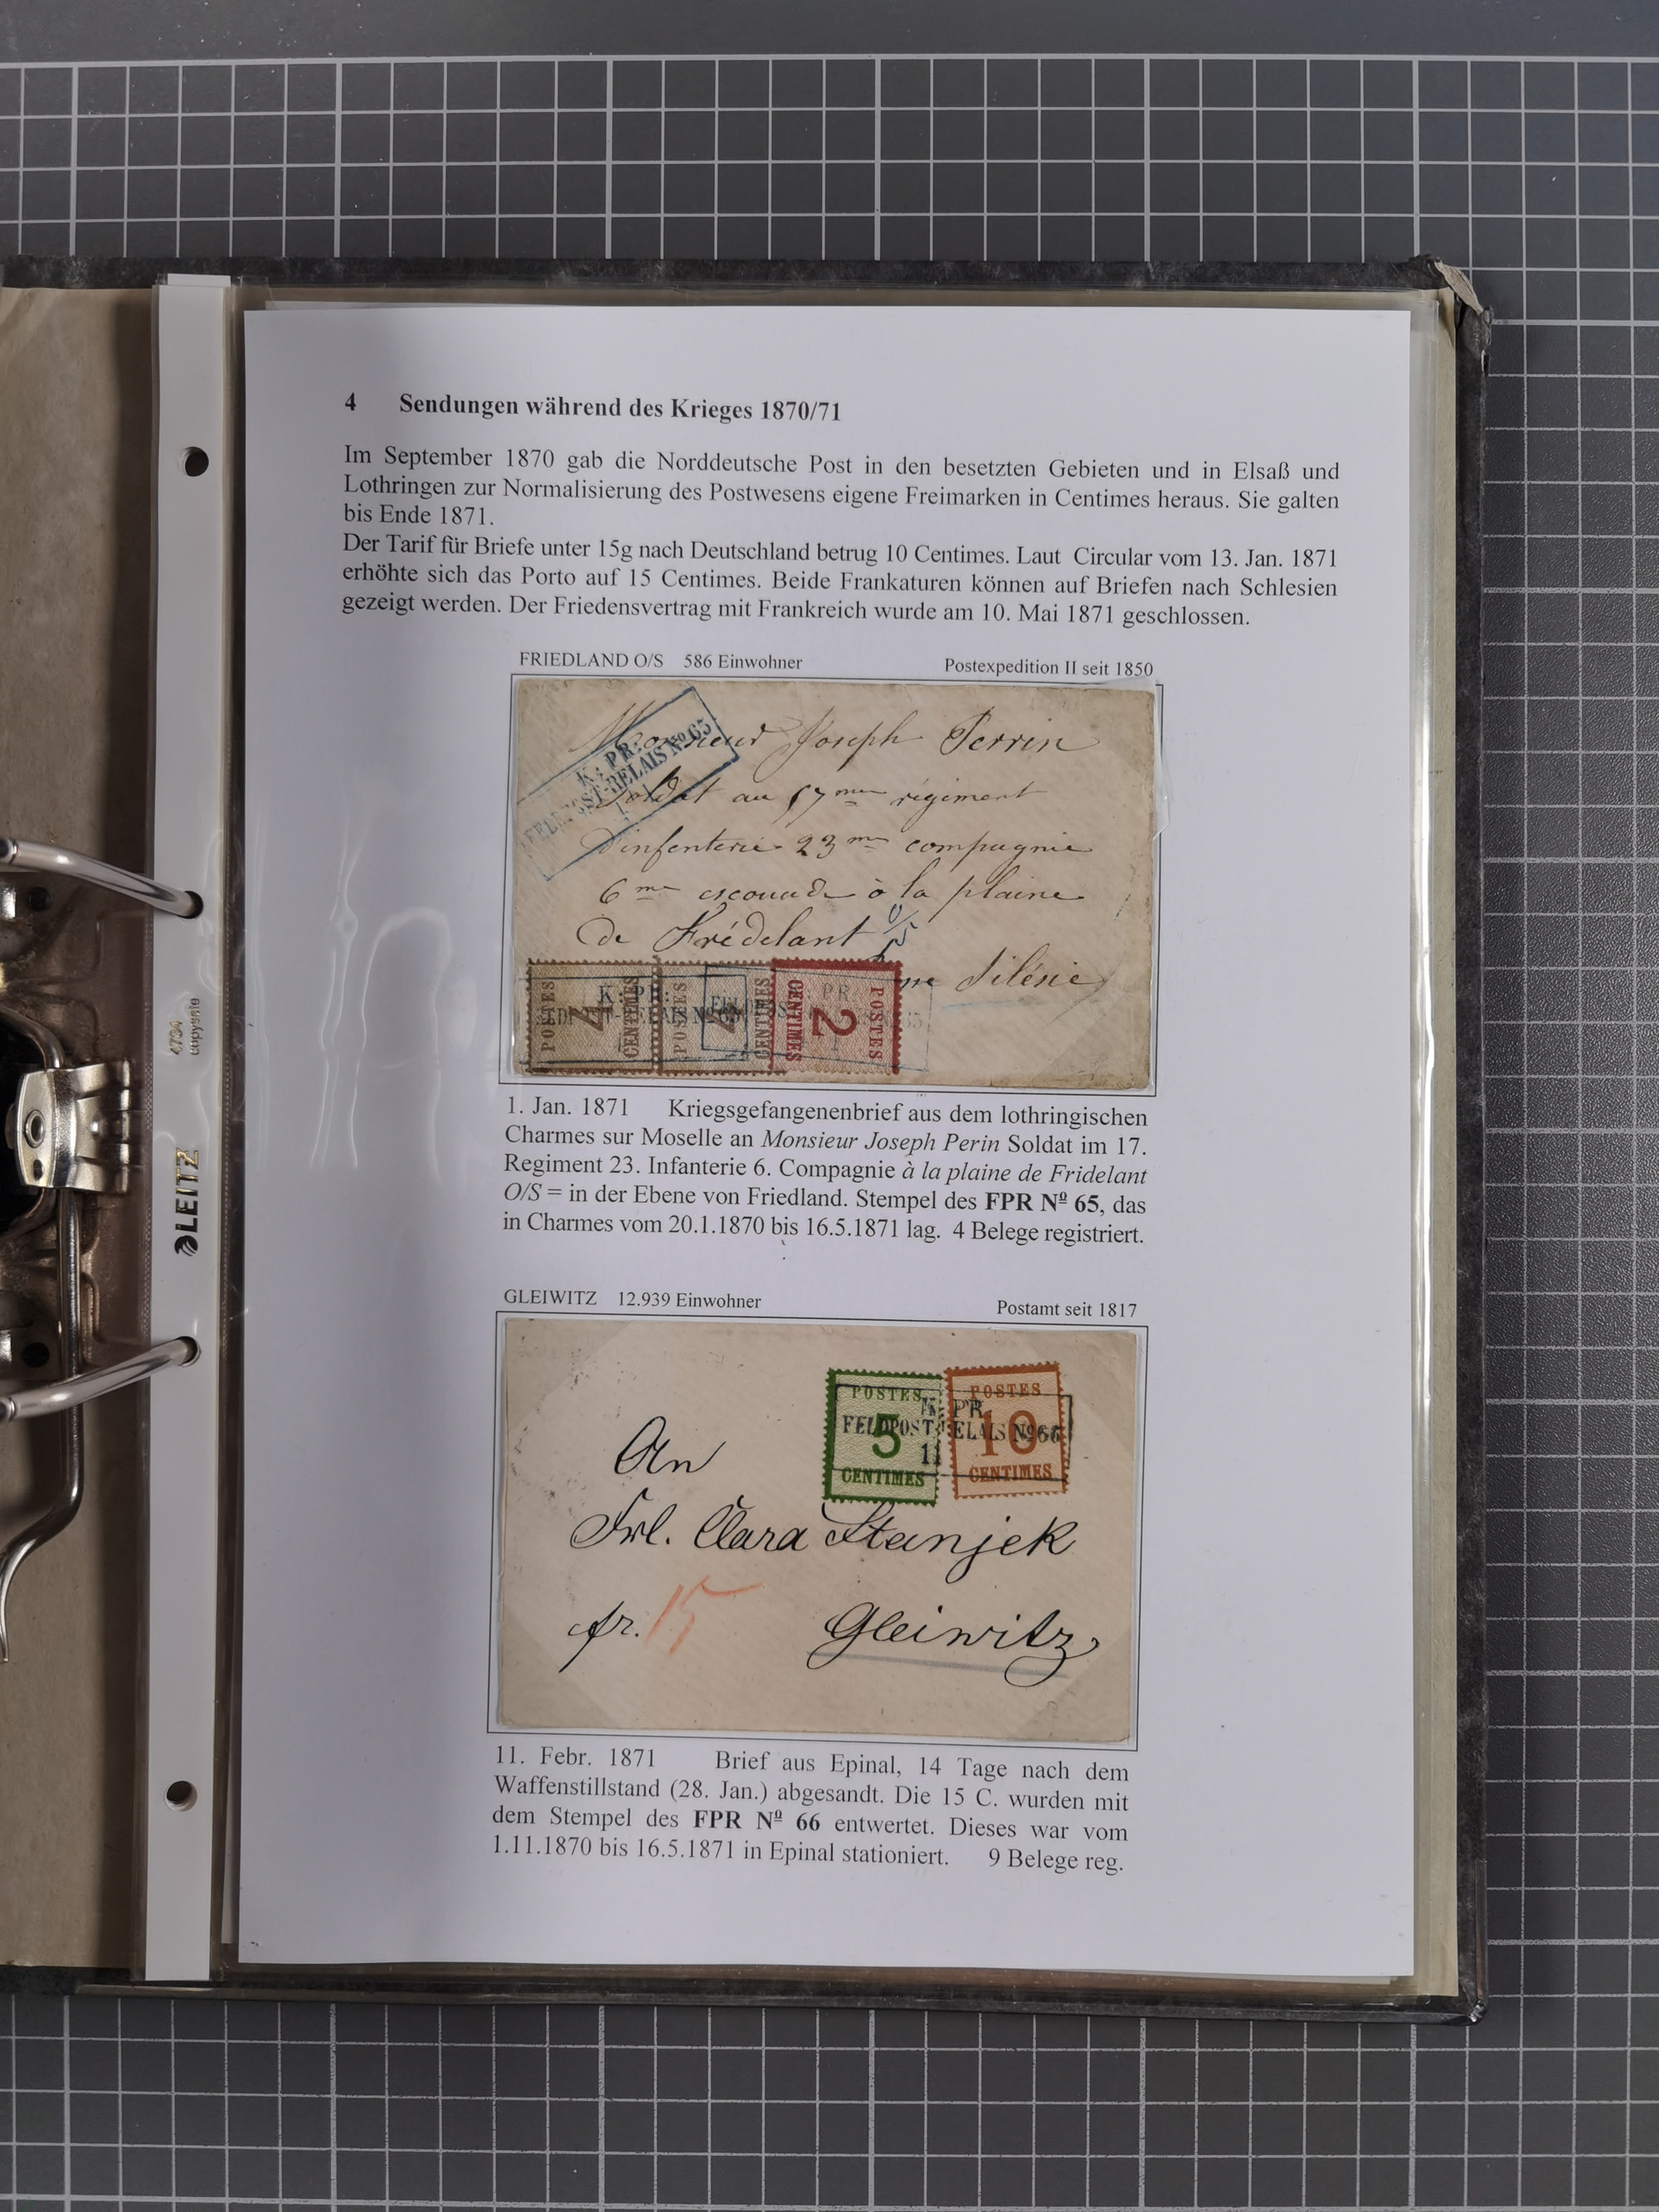 4 Sendungen während des Krieges 1870/71
Im September 1870 gab die Norddeutsche Post in den besetzten Gebieten und in Elsaß und
Lothringen zur Normalisierung des Postwesens eigene Freimarken in Centimes heraus. Sie galten
bis Ende 1871.
Der Tarif für Briefe unter 15g nach Deutschland betrug 10 Centimes. Laut Circular vom 13. Jan. 1871
erhöhte sich das Porto auf 15 Centimes. Beide Frankaturen können auf Briefen nach Schlesien
gezeigt werden. Der Friedensvertrag mit Frankreich wurde am 10. Mai 1871 geschlossen.
FRIEDLAND O/S 586 Einwohner Postexpedition II seit 1850
K: PR:
FELDPOST-RELAIS No 65
Monsieur Joseph Perrin
Soldat au 17me régiment
D'infenterie 23me compagnie
6me escouade à la plaine
De Frédelant O/S
Silésie
POSTES 4 CENTIMES
POSTES 4 CENTIMES
POSTES 2 CENTIMES
1. Jan. 1871 Kriegsgefangenenbrief aus dem lothringischen
Charmes sur Moselle an Monsieur Joseph Perin Soldat im 17.
Regiment 23. Infanterie 6. Compagnie à la plaine de Fridelant
O/S = in der Ebene von Friedland. Stempel des FPR Nº 65, das
in Charmes vom 20.1.1870 bis 16.5.1871 lag. 4 Belege registriert.
GLEIWITZ 12.939 Einwohner Postamt seit 1817
POSTES 5 CENTIMES
POSTES 10 CENTIMES
K: PR.
FELDPOST-RELAIS No 66
11
An
Frl. Clara Stanjek
fr. 15
Gleiwitz
11. Febr. 1871 Brief aus Epinal, 14 Tage nach dem
Waffenstillstand (28. Jan.) abgesandt. Die 15 C. wurden mit
dem Stempel des FPR Nº 66 entwertet. Dieses war vom
1.11.1870 bis 16.5.1871 in Epinal stationiert. 9 Belege reg.
LEITZ
4734
copysafe